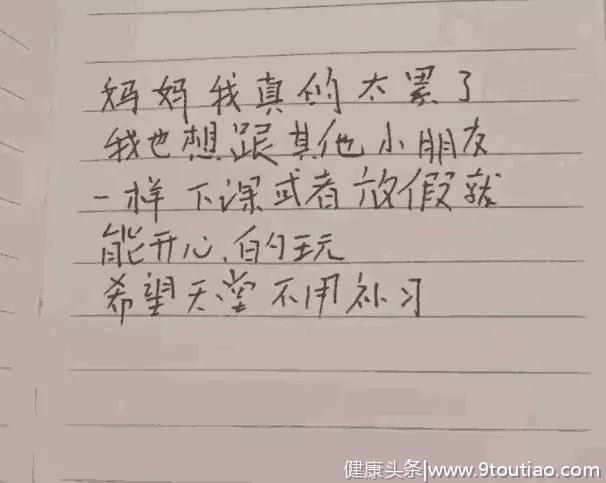 妈妈我真的太累了
我也想跟其他小朋友
一样下课或者放假就
能开心的玩
希望天堂不用补习
健康头条|www.9toutiao.com